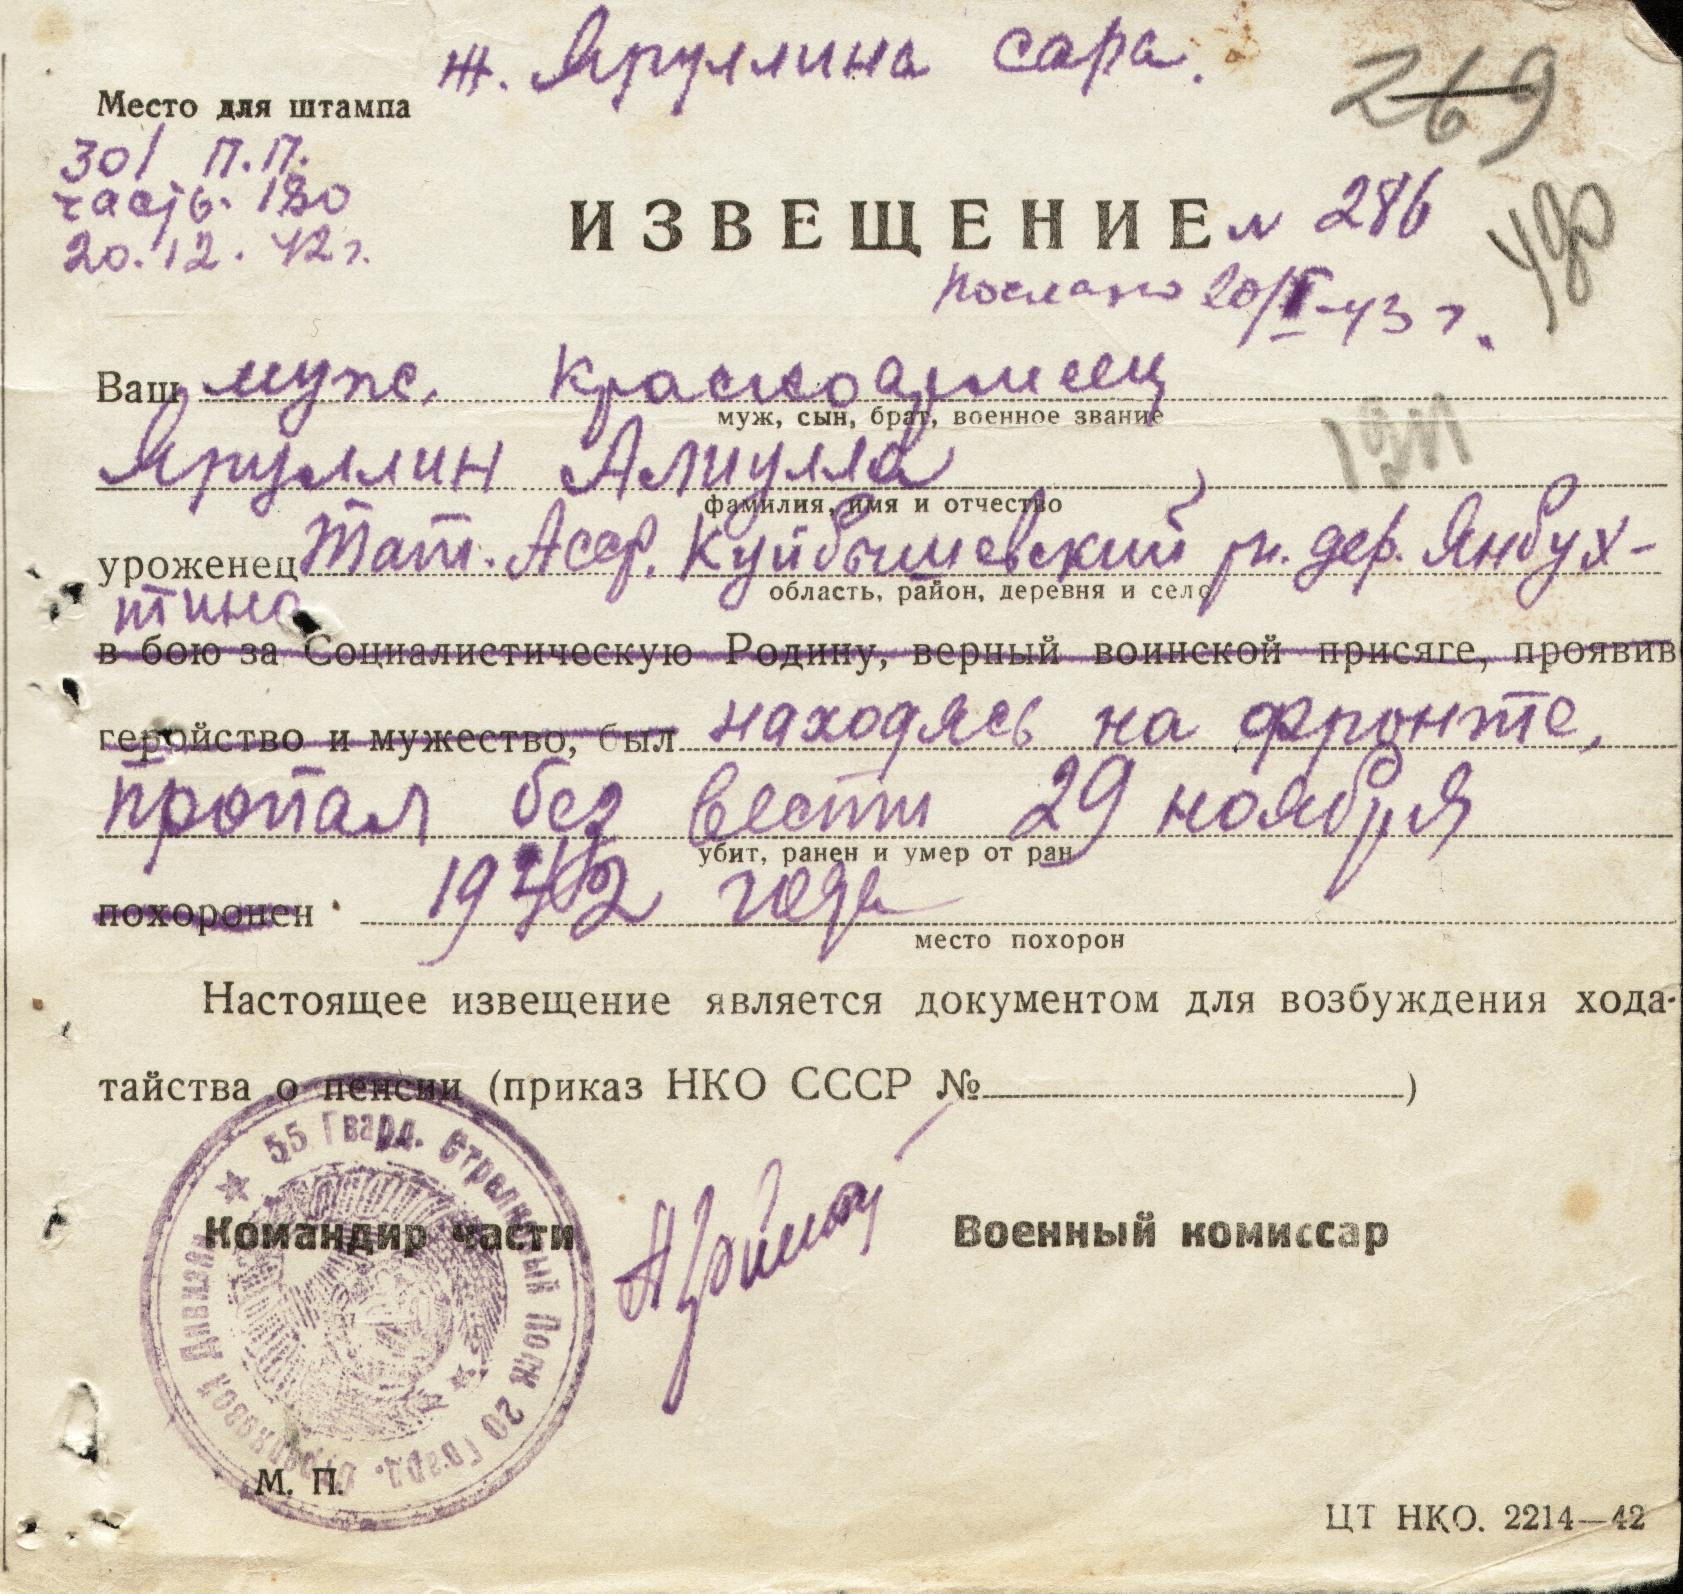 ж. Яруллина Сара.
269
Место для штампа
301 п.п.
часть. 180
20.12.42 г.
ИЗВЕЩЕНИЕ № 286
удо
послано 20/II-43 г.
Ваш муж, красноармеец
муж, сын, брат, военное звание
Яруллин Алиулла
фамилия, имя и отчество
уроженец Тат. Асср. Куйбышевский рн. дер. Янбух-
область, район, деревня и село
тино
в бою за Социалистическую Родину, верный воинской присяге, проявив
геройство и мужество, был находясь на фронте,
пропал без вести 29 ноября
убит, ранен и умер от ран
похоронен 1942 года
место похорон
Настоящее извещение является документом для возбуждения хода-
тайства о пенсии (приказ НКО СССР № )
55 Гвард. Стрелковый Полк 20 Гвард. Стрелковой Дивизии
Командир части Военный комиссар
М. П.
ЦТ НКО. 2214—42